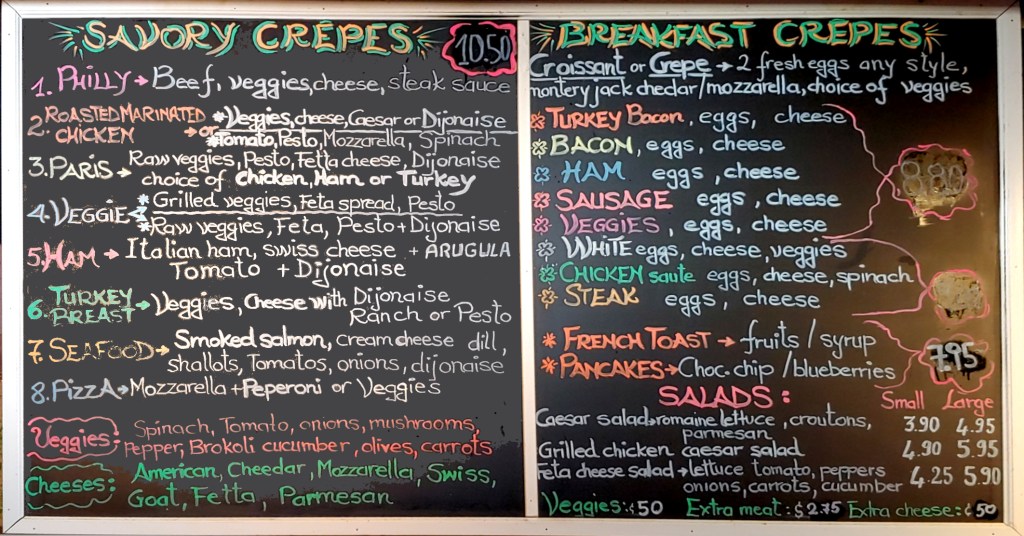 SAVORY CRÊPES 10.50
1. PHILLY → Beef, veggies, cheese, steak sauce
2. ROASTED MARINATED CHICKEN → or
*Veggies, cheese, Caesar or Dijonaise
*Tomato, Pesto, Mozzarella, Spinach
3. PARIS → Raw veggies, Pesto, Fetta cheese, Dijonaise
choice of Chicken, Ham or Turkey
4. VEGGIE
*Grilled veggies, Feta spread, Pesto
*Raw veggies, Feta, Pesto + Dijonaise
5. HAM → Italian ham, swiss cheese + ARUGULA
Tomato + Dijonaise
6. TURKEY BREAST → Veggies, Cheese with Dijonaise
Ranch or Pesto
7. SEAFOOD → Smoked salmon, cream cheese dill,
shallots, Tomatos, onions, dijonaise
8. PIZZA → Mozzarella + Peperoni or Veggie's
Veggies: Spinach, Tomato, onions, mushrooms,
Pepper, Brokoli cucumber, olives, carrots
Cheeses: American, Cheedar, Mozzarella, Swiss,
Goat, Fetta, Parmesan
BREAKFAST CRÊPES
Croissant or Crepe → 2 fresh eggs any style,
montery jack chedar/mozzarella, choice of veggies
TURKEY Bacon, eggs, cheese
BACON, eggs, cheese
HAM eggs, cheese
8.90
SAUSAGE eggs, cheese
VEGGIES, eggs, cheese
WHITE eggs, cheese, veggies
CHICKEN saute eggs, cheese, spinach
STEAK eggs, cheese
* FRENCH TOAST → fruits / syrup
7.95
* PANCAKES → Choc. chip / blueberries
SALADS: Small Large
Caesar salad → romaine lettuce, croutons, 3.90 4.95
parmesan
Grilled chicken caesar salad 4.90 5.95
Feta cheese salad → lettuce tomato, peppers 4.25 5.90
onions, carrots, cucumber
Veggies: ¢50 Extra meat: $2.75 Extra cheese: ¢50